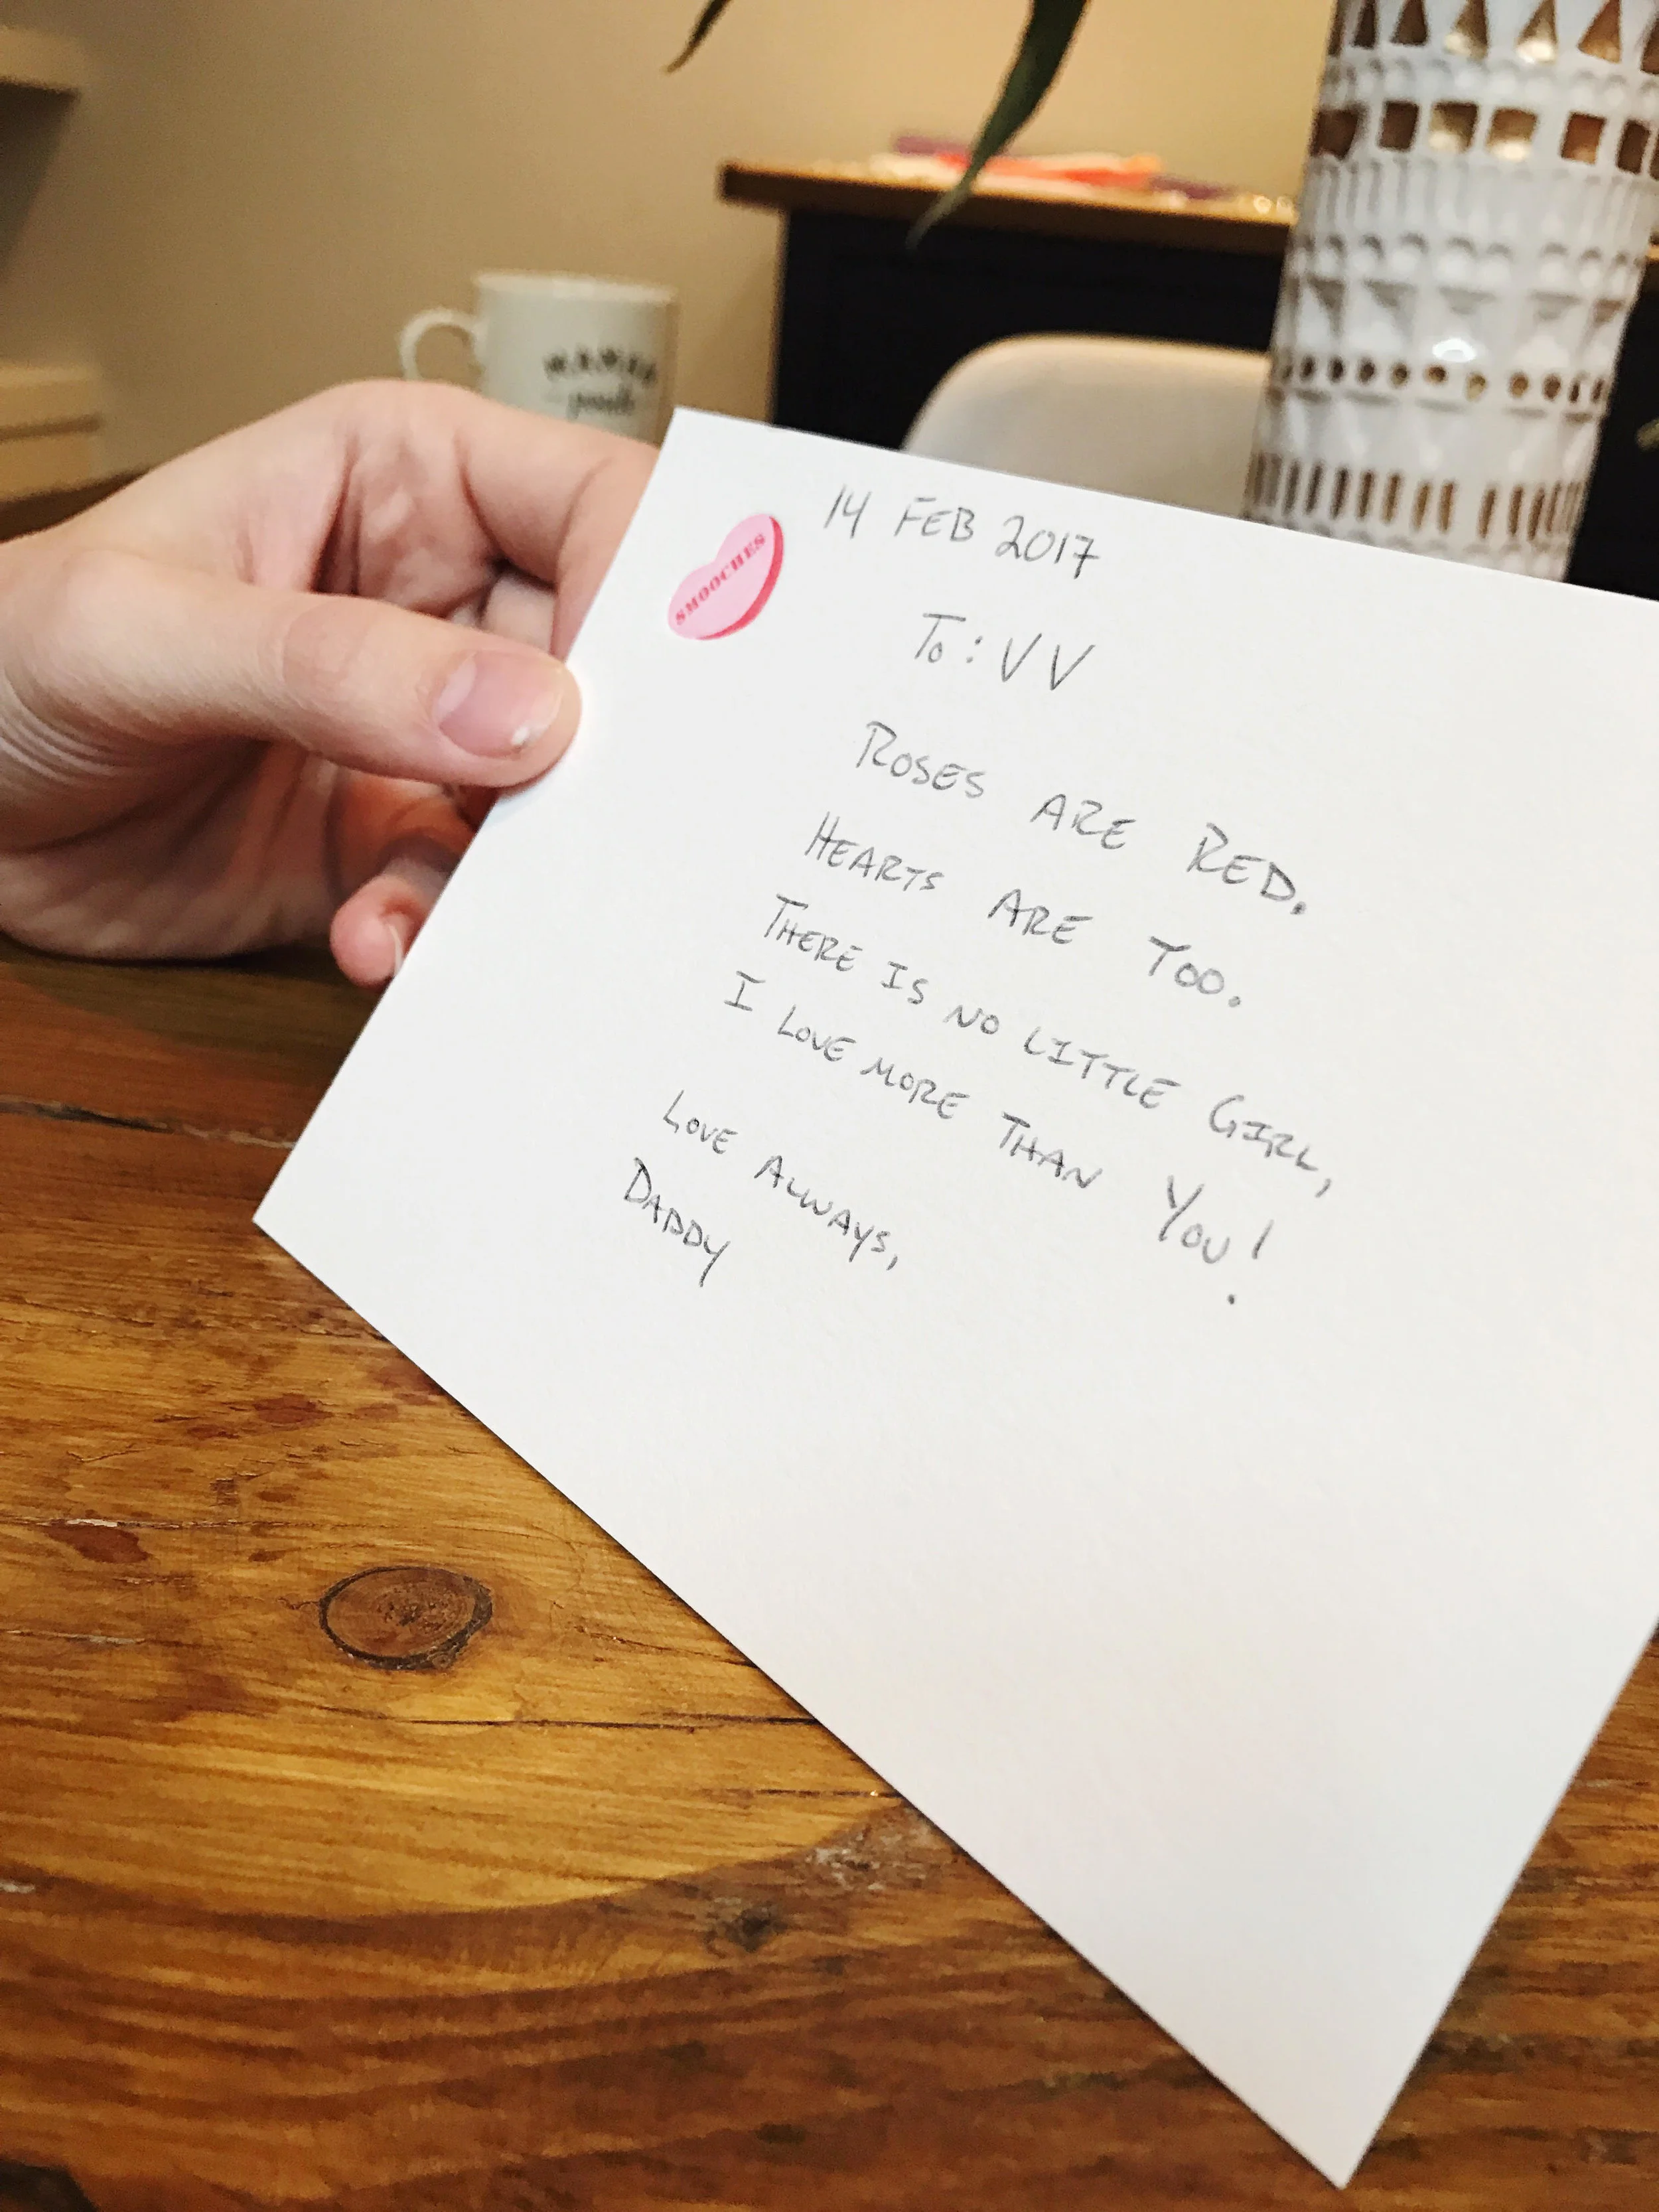 14 FEB 2017
SMOOCHES
TO: VV
ROSES ARE RED.
HEARTS ARE TOO.
THERE IS NO LITTLE GIRL,
I LOVE MORE THAN YOU!
LOVE ALWAYS,
DADDY